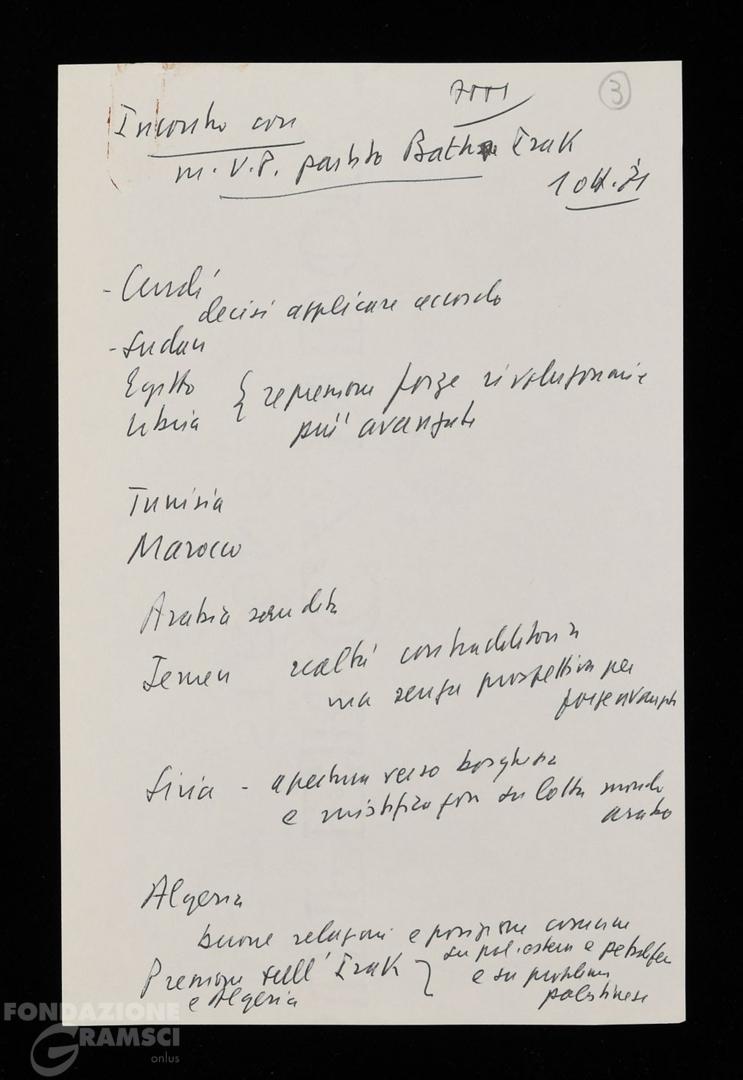 3
Incontro con
m. V.P. partito Bath Irak
10 .71
- Curdi
decisi applicare accordo
- Sudan
Egitto
Libia { repressione forze rivoluzionarie
più avanzate
Tunisia
Marocco
Arabia saudita
Iemen realtà contraddittoria
ma senza prospettiva per
forze avanzate
Siria - apertura verso borghesia
e mistificazione su lotta mondo
arabo
Algeria
buone relazioni e posizione comune
su pol. estera e petrolifera
Pressione sull' Irak } e su problema
e Algeria palestinese
FONDAZIONE
GRAMSCI
onlus